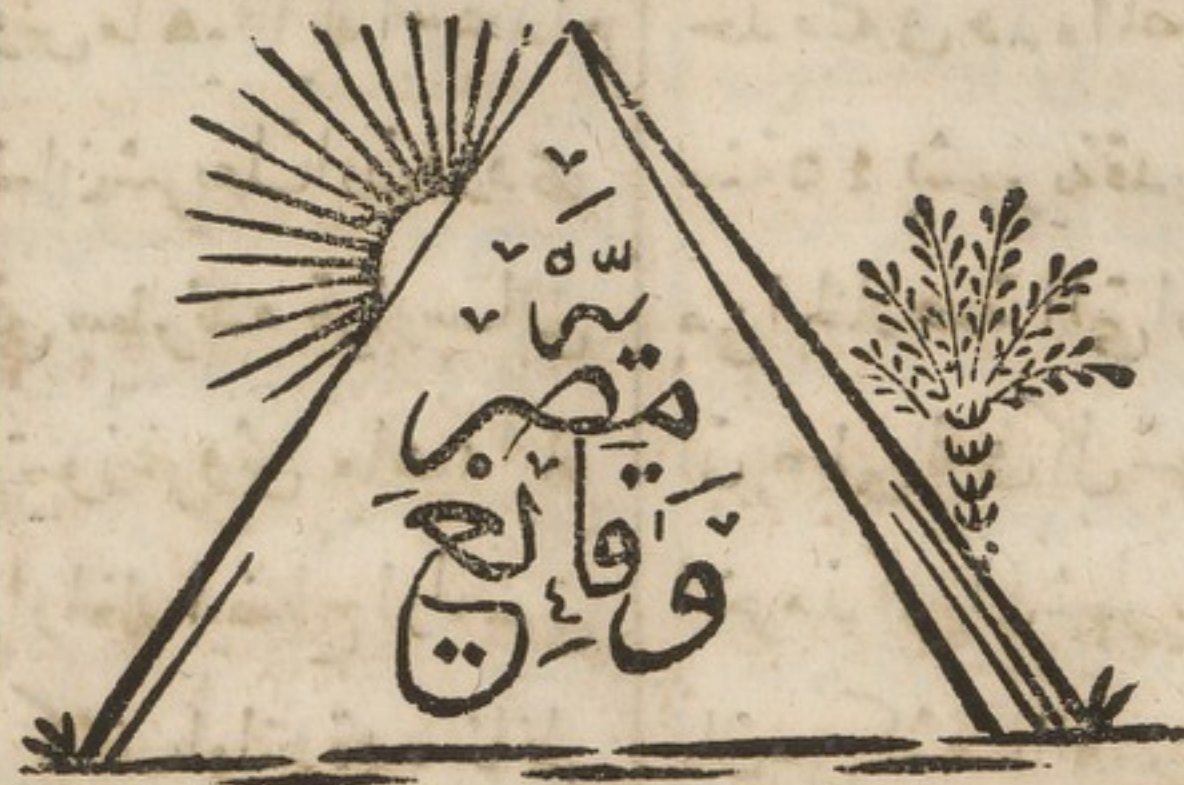 وَقَائِع
مِصْر
يَّه